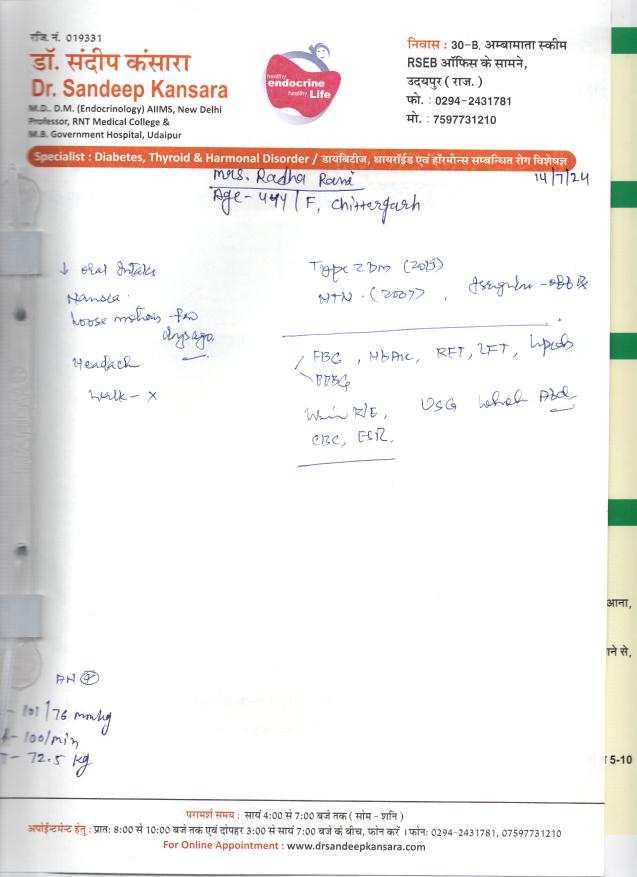 रजि. नं. 019331
डॉ. संदीप कंसारा
Dr. Sandeep Kansara
M.D., D.M. (Endocrinology) AIIMS, New Delhi
Professor, RNT Medical College &
M.B. Government Hospital, Udaipur
healthy
endocrine
healthy Life
निवास : 30-B, अम्बामाता स्कीम
RSEB ऑफिस के सामने,
उदयपुर ( राज. )
फो. : 0294-2431781
मो. : 7597731210
Specialist : Diabetes, Thyroid & Harmonal Disorder / डायबिटीज, थायरॉईड एवं हॉरमोन्स सम्बन्धित रोग विशेषज्ञ
Mrs. Radha Rani
14/7/24
Age - 44y / F, Chittorgarh
↓ oral Intake
Nausea.
Loose motions - few
days ago.
Headach
Walk - x
Type 2 DM (2019)
HTN. (2007)
FBG, HbA1c, RFT, LFT, Lipids
PPBG
Urin R/E, USG whole Abd
CBC, ESR.
101/76 mmhg
- 100/min
- 72.5 kg
आना,
ाने से,
5-10
परामर्श समय : सायं 4:00 से 7:00 बजे तक ( सोम - शनि )
अपोईन्टमेन्ट हेतु : प्रातः 8:00 से 10:00 बजे तक एवं दोपहर 3:00 से सायं 7:00 बजे के बीच, फोन करें । फोन: 0294-2431781, 07597731210
For Online Appointment : www.drsandeepkansara.com